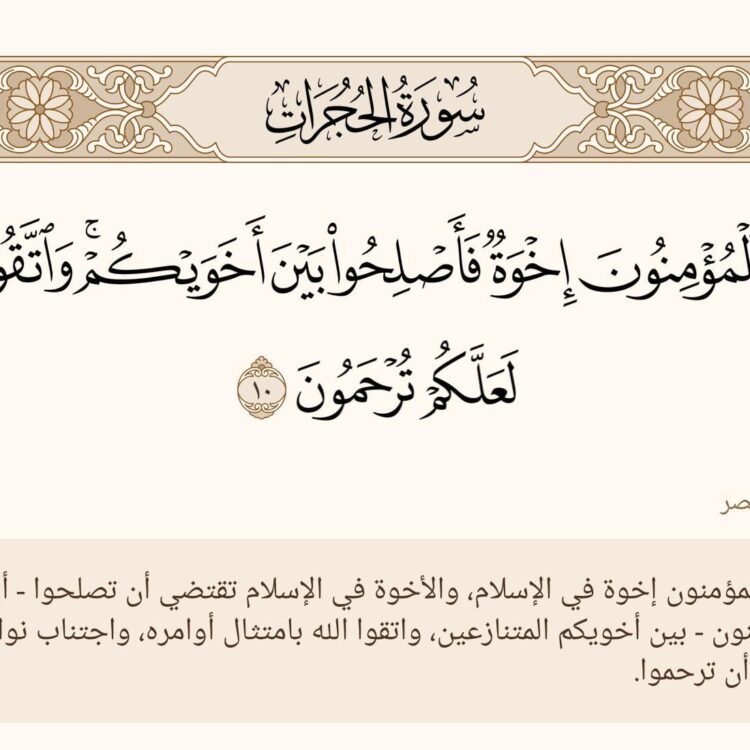 سُورَةُ الحُجُرَاتِ
لْمُؤْمِنُونَ إِخْوَةٌ فَأَصْلِحُوا۟ بَيْنَ أَخَوَيْكُمْ ۚ وَٱتَّقُو
لَعَلَّكُمْ تُرْحَمُونَ ١٠
صر
مؤمنون إخوة في الإسلام، والأخوة في الإسلام تقتضي أن تصلحوا - أ
نون - بين أخويكم المتنازعين، واتقوا الله بامتثال أوامره، واجتناب نوا
أن ترحموا.